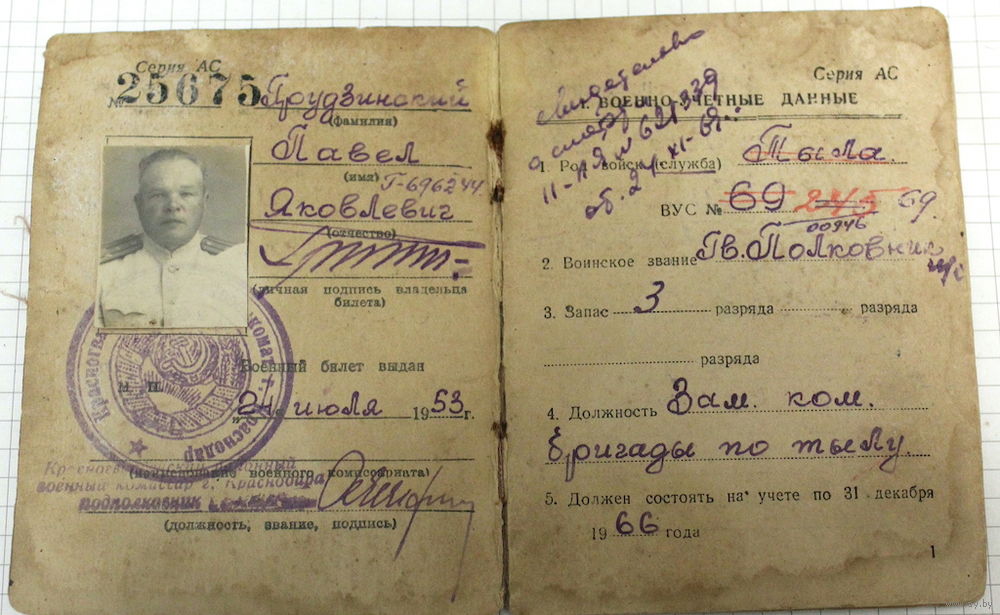 Серия АС
№ 25675
Прудзинский
(фамилия)
Павел
(имя)
Яковлевич
(отчество)
(личная подпись владельца
билета)
М. П.
Военный билет выдан
„24“ июля 1953 г.
(наименование военного комиссариата)
военный комиссар г. Краснодара
подполковник
(должность, звание, подпись)
Серия АС
ВОЕННО-УЧЕТНЫЕ ДАННЫЕ
1. Род войск (служба) Тыла.
ВУС № 69 69.
00946
2. Воинское звание Гв. Полковник
и/с
3. Запас 3 разряда разряда
разряда
4. Должность Зам. ком.
бригады по тылу.
5. Должен состоять на учете по 31 декабря
1966 года
1